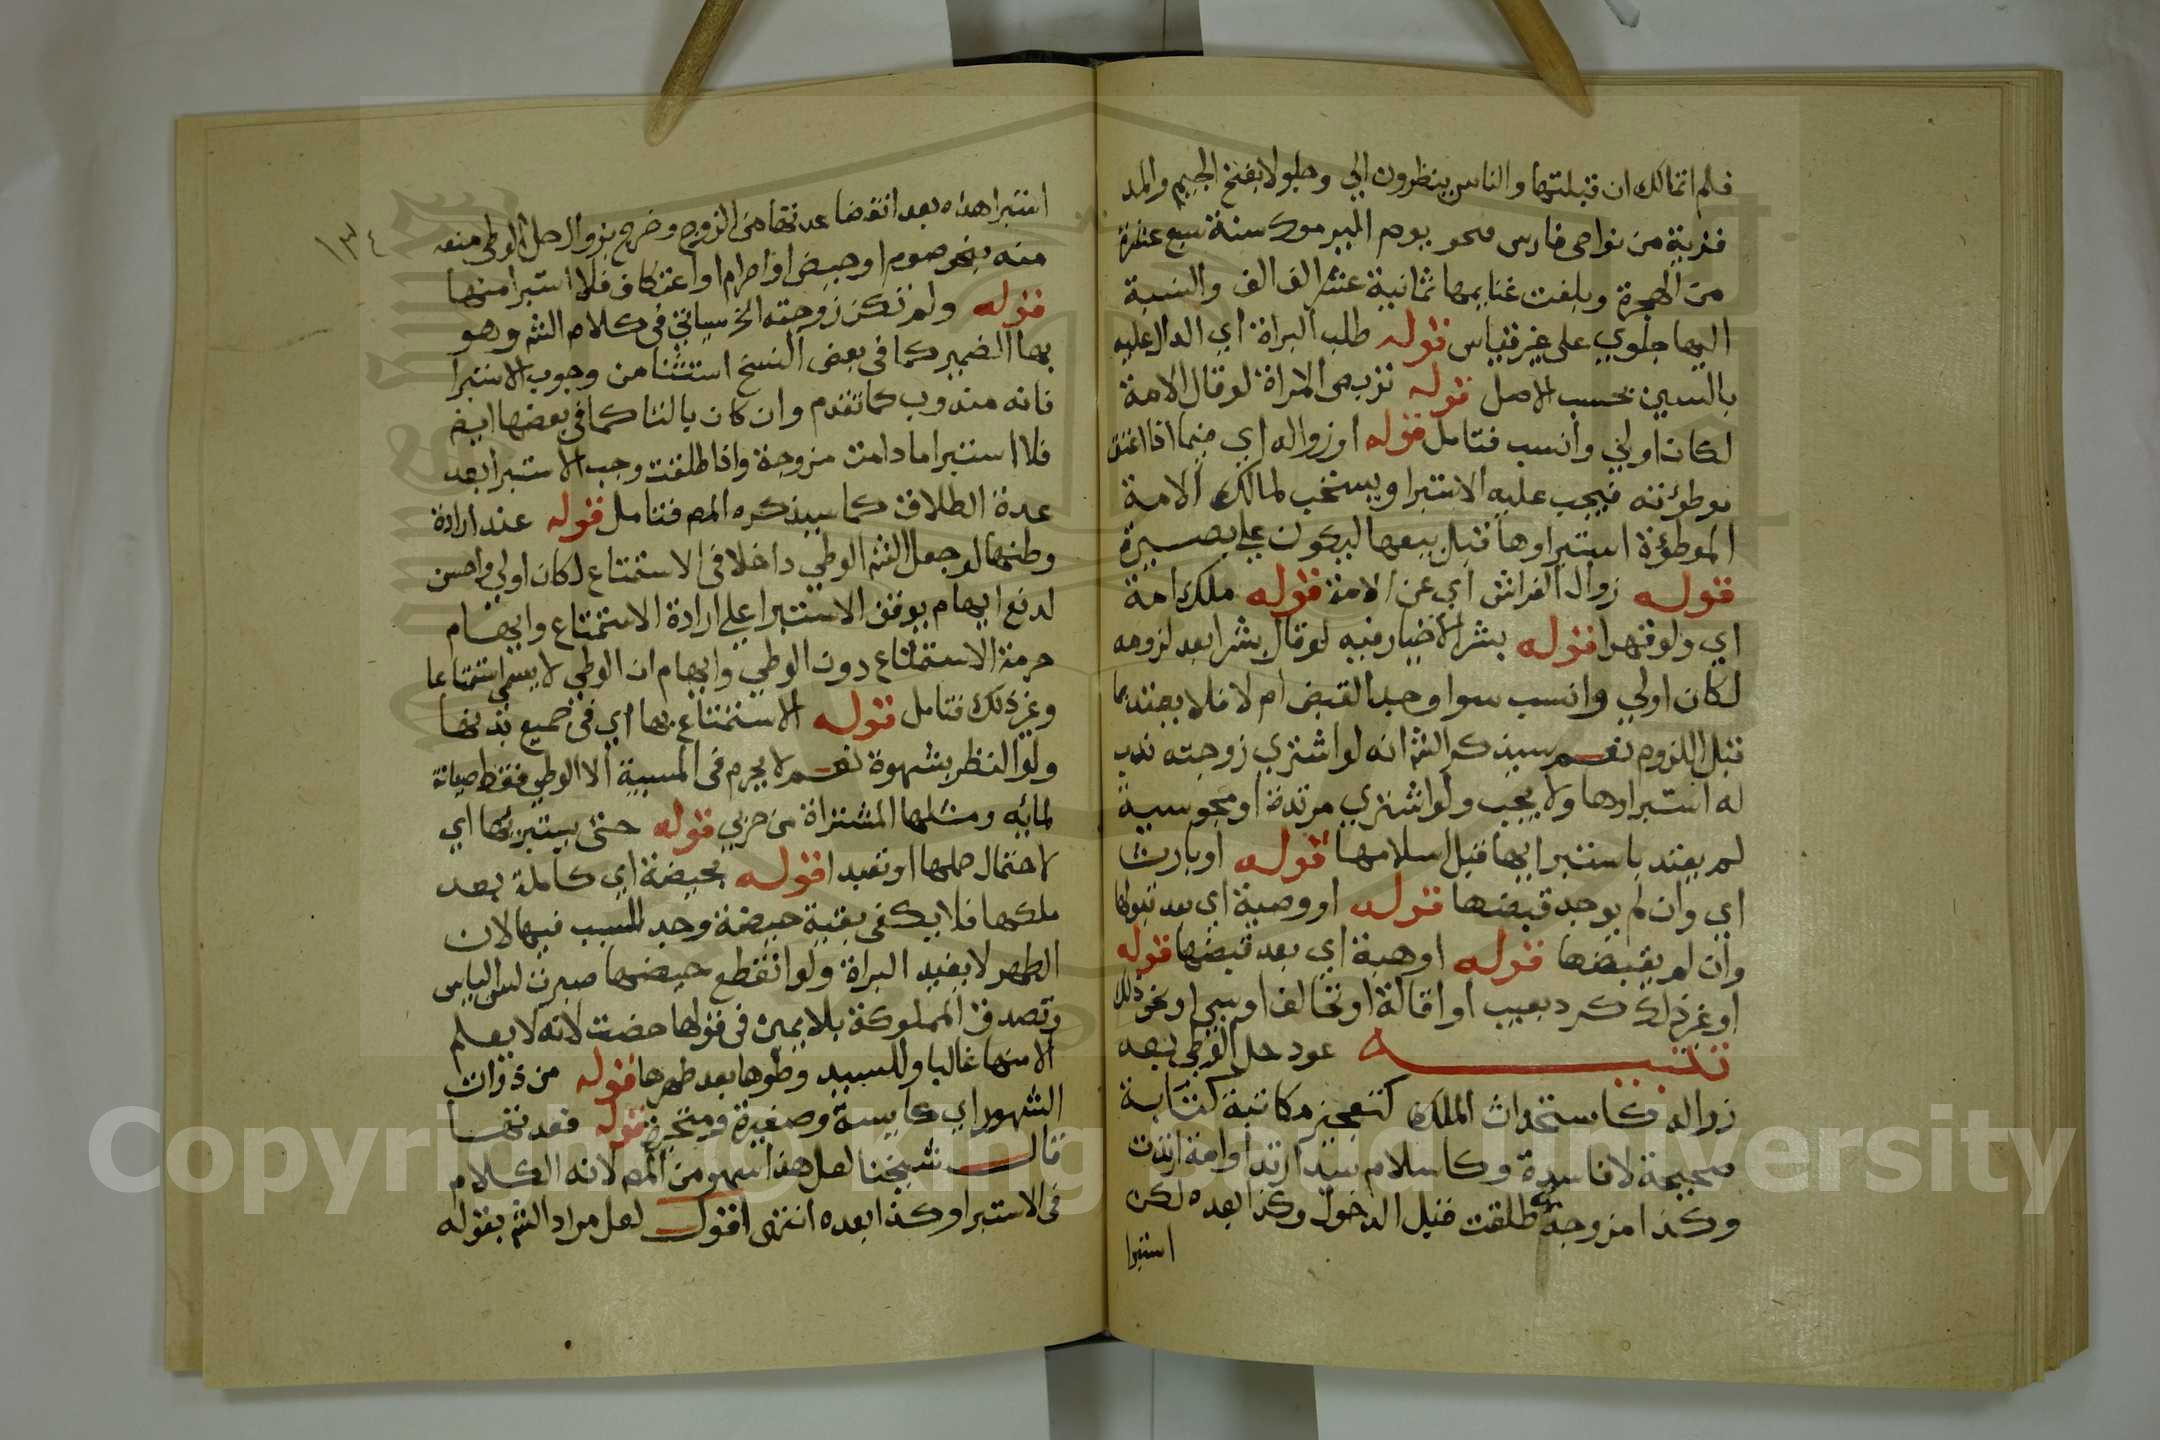 فلم اتمالك ان قبلتها والناس ينظرون الي وجلولا بفتح الجيم والمد
قرية من نواحي فارس فتحو يوم اليرموك سنة سبع عشرة
من الهجرة وبلغت غنايمها ثمانية عشر الف الف والنسبة
اليها جلوي على غير قياس قوله طلب البراة اي الدال عليه
بالسين بحسب الاصل قوله تربص المراة لو قال الامة
لكان اولي وانسب فتامل قوله او زواله اي فيما اذا اعتق
موطؤته فيجب عليه الاستبرا ويستحب لمالك الامة
الموطؤة استبراوها قبل بيعها ليكون علي بصيرة
قوله زوال الفراش اي عن الامة قوله ملك امة
اي ولو قهرا قوله بشرا لاخيار فيه لو قال بشرا بعد لزومه
لكان اولي وانسب سوا وجد القبض ام لا فلا يعتد بما
قبل اللزوم نعم سيذكر الشم انه لو اشتري زوجته ندب
له استبراوها ولا يجب ولو اشتري مرتدة او مجوسية
لم يعتد باستبرايها قبل اسلامها قوله او بارث
اي وان لم يوجد قبضها قوله او وصية اي بعد قبولها
وان لم يقبضها قوله او هبة اي بعد قبضها قوله
او غير ذلك كرد بعيب او اقالة او تخالف او سبي او نحو ذلك
تنبيه عود حل الوطي بعد
زواله كاستحداث الملك كتعجيز مكاتبة كتابة
صحيحة لا فاسدة وكاسلام سيد ارتد او امة ارتدت
وكذا مزوجة طلقت قبل الدخول وكذا بعده لكن
استبرا
١٣٤
استبرا هذه بعد انقضا عدتها من الزوج وخرج بزوال حل الوطي منعه
منه بنحو صوم او حيض او احرام او اعتكاف فلا استبرا منها
قوله ولم تكن زوجته الخ سياتي في كلام الشم وهو
بها الضمير كما في بعض النسخ استثنا من وجوب الاستبرا
فانه مندوب كما تقدم وان كان بالتا كما في بعضها ايضا
فلا استبرا ما دامت مزوجة واذا طلقت وجب الاستبرا بعد
عدة الطلاق كما سيذكره المص فتامل قوله عند ارادة
وطئها لو جعل الشم الوطي داخلا في الاستمتاع لكان اولي واحسن
لدفع ايهام يوقف الاستبرا علي ارادة الاستمتاع وايهام
حرمة الاستمتاع دون الوطي وايهام ان الوطي لا يسمي استمتاعا
وغير ذلك فتامل قوله الاستمتاع بها اي في جميع بدنها
ولو النظر بشهوة نعم لا يحرم في المسبية الا الوطي فقط صيانة
لمائه ومثلها المشتراة من حربي قوله حتى يستبرئها اي
لاحتمال حملها او تعبدا قوله بحيضة اي كاملة بعد
ملكها فلا يكفي بقية حيضة وجد السبب فيها لان
الطهر لا يفيد البراة ولو انقطع حيضها صبرت لسن الياس
وتصدق المملوكة بلا يمين في قولها حضت لانه لا يعلم
الا منها غالبا وللسيد وطؤها بعد طهرها قوله من ذوات
الشهور اي كايسة وصغيرة ومتحيرة قوله فعدتها
قال شيخنا لعل هذا سهو من المص لانه الكلام
في الاستبرا وكذا بعده انتهى اقول لعل مراد الشم بقوله